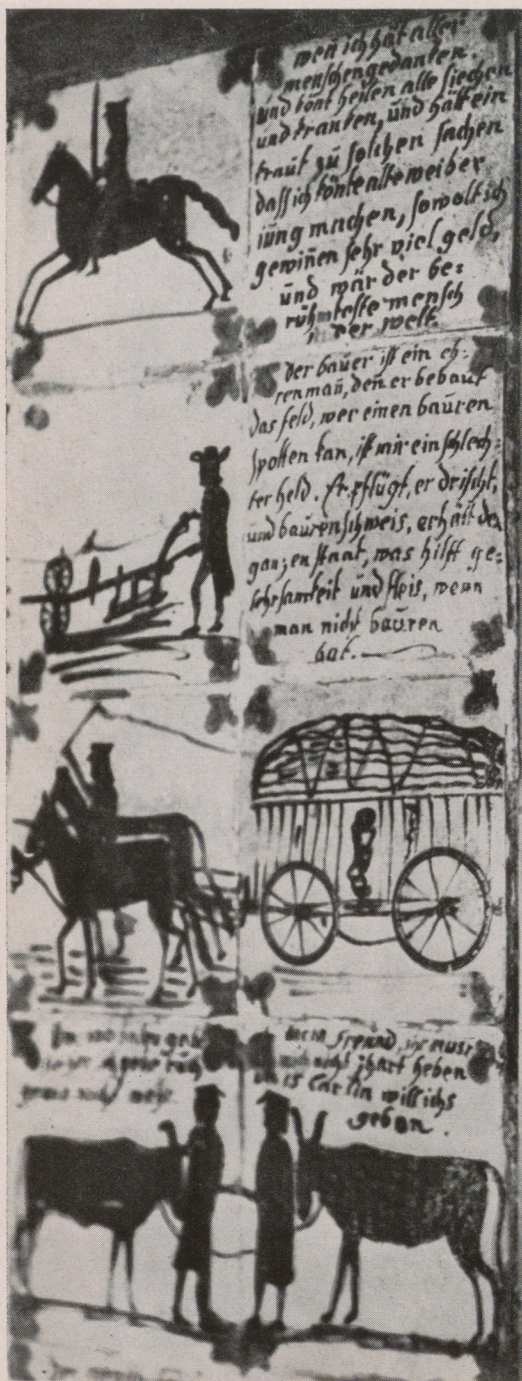 wen ich hät aller
menschengedanken.
und könt heilen alle siechen
und kranken, und hätt ein
kraut zu solchen sachen
dass ich könt alte weiber
iung machen, so wolt ich
gewinen sehr viel geld,
und wär der be=
rühmteste mensch
der welt.
der bauer ist ein eh=
renman, den er bebaut
das feld, wer einen bauren
spotten kan, ist mir ein schlech=
ter held. Er pflügt, er drischt,
und baurenschweis, erhält den
ganzen staat, was hilft ge=
lehrsamkeit und fleis, wenn
man nicht bauren
hat.
mein freund, ir must
mich nicht
will ichs
geben.